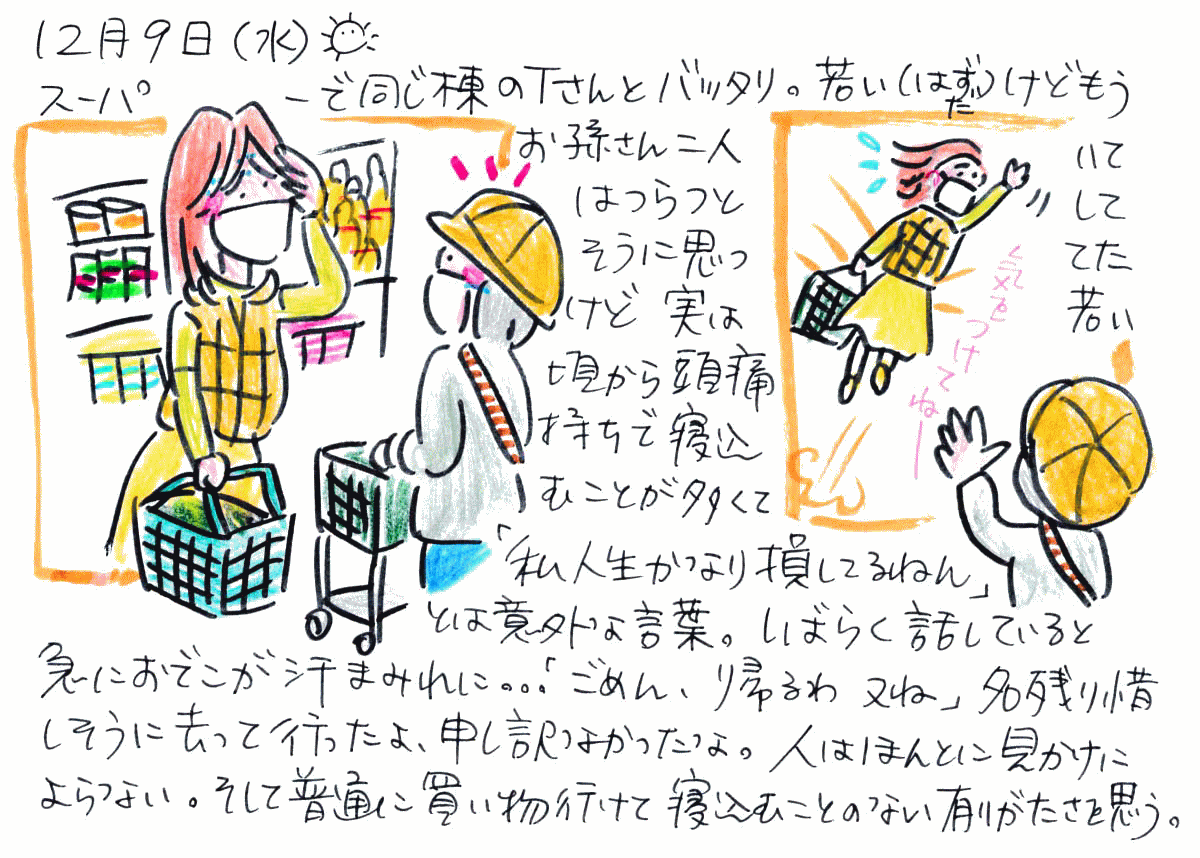 12月9日(水)
スーパーで同じ棟のTさんとバッタリ。若い(はずだ)けどもう
お孫さん二人 いて
はつらつと して
そうに思っ てた
けど 実は 若い
頃から頭痛
持ちで寝込
むことが多くて
「私人生かなり損してるねん」
とは意外な言葉。しばらく話していると
急におでこが汗まみれに...「ごめん、帰るわ 又ね」名残り惜
しそうに去って行ったよ、申し訳なかったな。人はほんとに見かけに
よらない。そして普通に買い物行けて寝込むことのない有りがたさを思う。
気をつけてねー